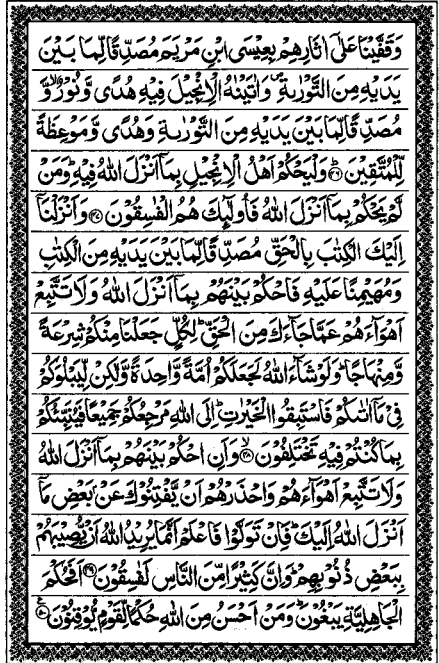 وَقَفَّيْنَا عَلٰٓى اٰثَارِهِمْ بِعِيْسَى ابْنِ مَرْيَمَ مُصَدِّقًا لِّمَا بَيْنَ
يَدَيْهِ مِنَ التَّوْرٰىةِ ۪ وَاٰتَيْنٰهُ الْاِنْجِيْلَ فِيْهِ هُدًى وَّنُوْرٌ ۙ وَّ
مُصَدِّقًا لِّمَا بَيْنَ يَدَيْهِ مِنَ التَّوْرٰىةِ وَهُدًى وَّمَوْعِظَةً
لِّلْمُتَّقِيْنَ ؕ﴿۴۶﴾ وَلْيَحْكُمْ اَهْلُ الْاِنْجِيْلِ بِمَاۤ اَنْزَلَ اللّٰهُ فِيْهِ ؕ وَمَنْ
لَّمْ يَحْكُمْ بِمَاۤ اَنْزَلَ اللّٰهُ فَاُولٰٓئِكَ هُمُ الْفٰسِقُوْنَ ﴿۴۷﴾ وَاَنْزَلْنَاۤ
اِلَيْكَ الْكِتٰبَ بِالْحَقِّ مُصَدِّقًا لِّمَا بَيْنَ يَدَيْهِ مِنَ الْكِتٰبِ
وَمُهَيْمِنًا عَلَيْهِ فَاحْكُمْ بَيْنَهُمْ بِمَاۤ اَنْزَلَ اللّٰهُ وَلَا تَتَّبِعْ
اَهْوَآءَهُمْ عَمَّا جَآءَكَ مِنَ الْحَقِّ ؕ لِكُلٍّ جَعَلْنَا مِنْكُمْ شِرْعَةً
وَّمِنْهَاجًا ؕ وَلَوْ شَآءَ اللّٰهُ لَجَعَلَكُمْ اُمَّةً وَّاحِدَةً وَّلٰكِنْ لِّيَبْلُوَكُمْ
فِيْ مَاۤ اٰتٰىكُمْ فَاسْتَبِقُوا الْخَيْرٰتِ ؕ اِلَى اللّٰهِ مَرْجِعُكُمْ جَمِيْعًا فَيُنَبِّئُكُمْ
بِمَا كُنْتُمْ فِيْهِ تَخْتَلِفُوْنَ ۙ﴿۴۸﴾ وَاَنِ احْكُمْ بَيْنَهُمْ بِمَاۤ اَنْزَلَ اللّٰهُ
وَلَا تَتَّبِعْ اَهْوَآءَهُمْ وَاحْذَرْهُمْ اَنْ يَّفْتِنُوْكَ عَنْۢ بَعْضِ مَاۤ
اَنْزَلَ اللّٰهُ اِلَيْكَ ؕ فَاِنْ تَوَلَّوْا فَاعْلَمْ اَنَّمَا يُرِيْدُ اللّٰهُ اَنْ يُّصِيْبَهُمْ
بِبَعْضِ ذُنُوْبِهِمْ ؕ وَاِنَّ كَثِيْرًا مِّنَ النَّاسِ لَفٰسِقُوْنَ ﴿۴۹﴾ اَفَحُكْمَ
الْجَاهِلِيَّةِ يَبْغُوْنَ ؕ وَمَنْ اَحْسَنُ مِنَ اللّٰهِ حُكْمًا لِّقَوْمٍ يُّوْقِنُوْنَ ﴿۵۰﴾